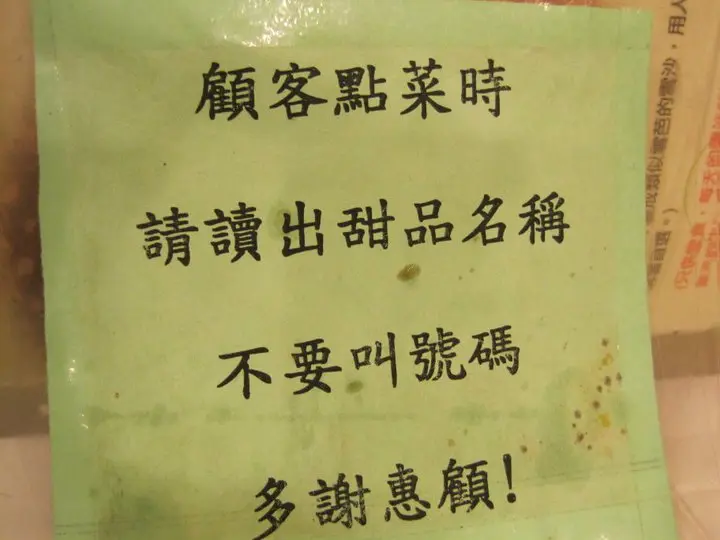 顧客點菜時
請讀出甜品名稱
不要叫號碼
多謝惠顧!